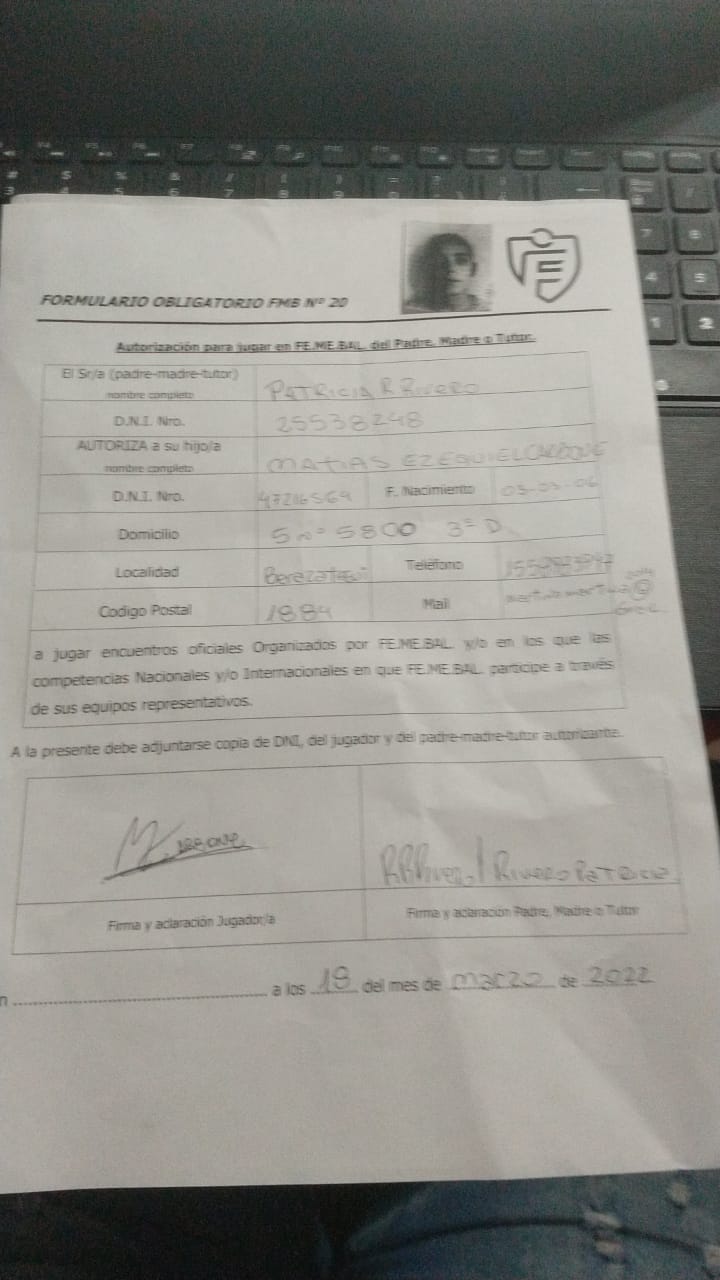 FORMULARIO OBLIGATORIO FMB Nº 20
Autorización para jugar en FE.ME.BAL. del Padre, Madre o Tutor.
El Sr/a (padre-madre-tutor)
nombre completo
PATRICIA R RIVERO
D.N.I. Nro.
25538248
AUTORIZA a su hijo/a
nombre completo
MATIAS EZEQUIEL
D.N.I. Nro.
47216564
F. Nacimiento
03-03-06
Domicilio
5 nº 5800 3º D
Localidad
Berazategui
Teléfono
Codigo Postal
1884
Mail
a jugar encuentros oficiales Organizados por FE.ME.BAL. y/o en los que las
competencias Nacionales y/o Internacionales en que FE.ME.BAL. participe a través
de sus equipos representativos.
A la presente debe adjuntarse copia de DNI, del jugador y del padre-madre-tutor autorizante.
Rivero Patricia
Firma y aclaración Jugador/a
Firma y aclaración Padre, Madre o Tutor
a los 18 del mes de marzo de 2022